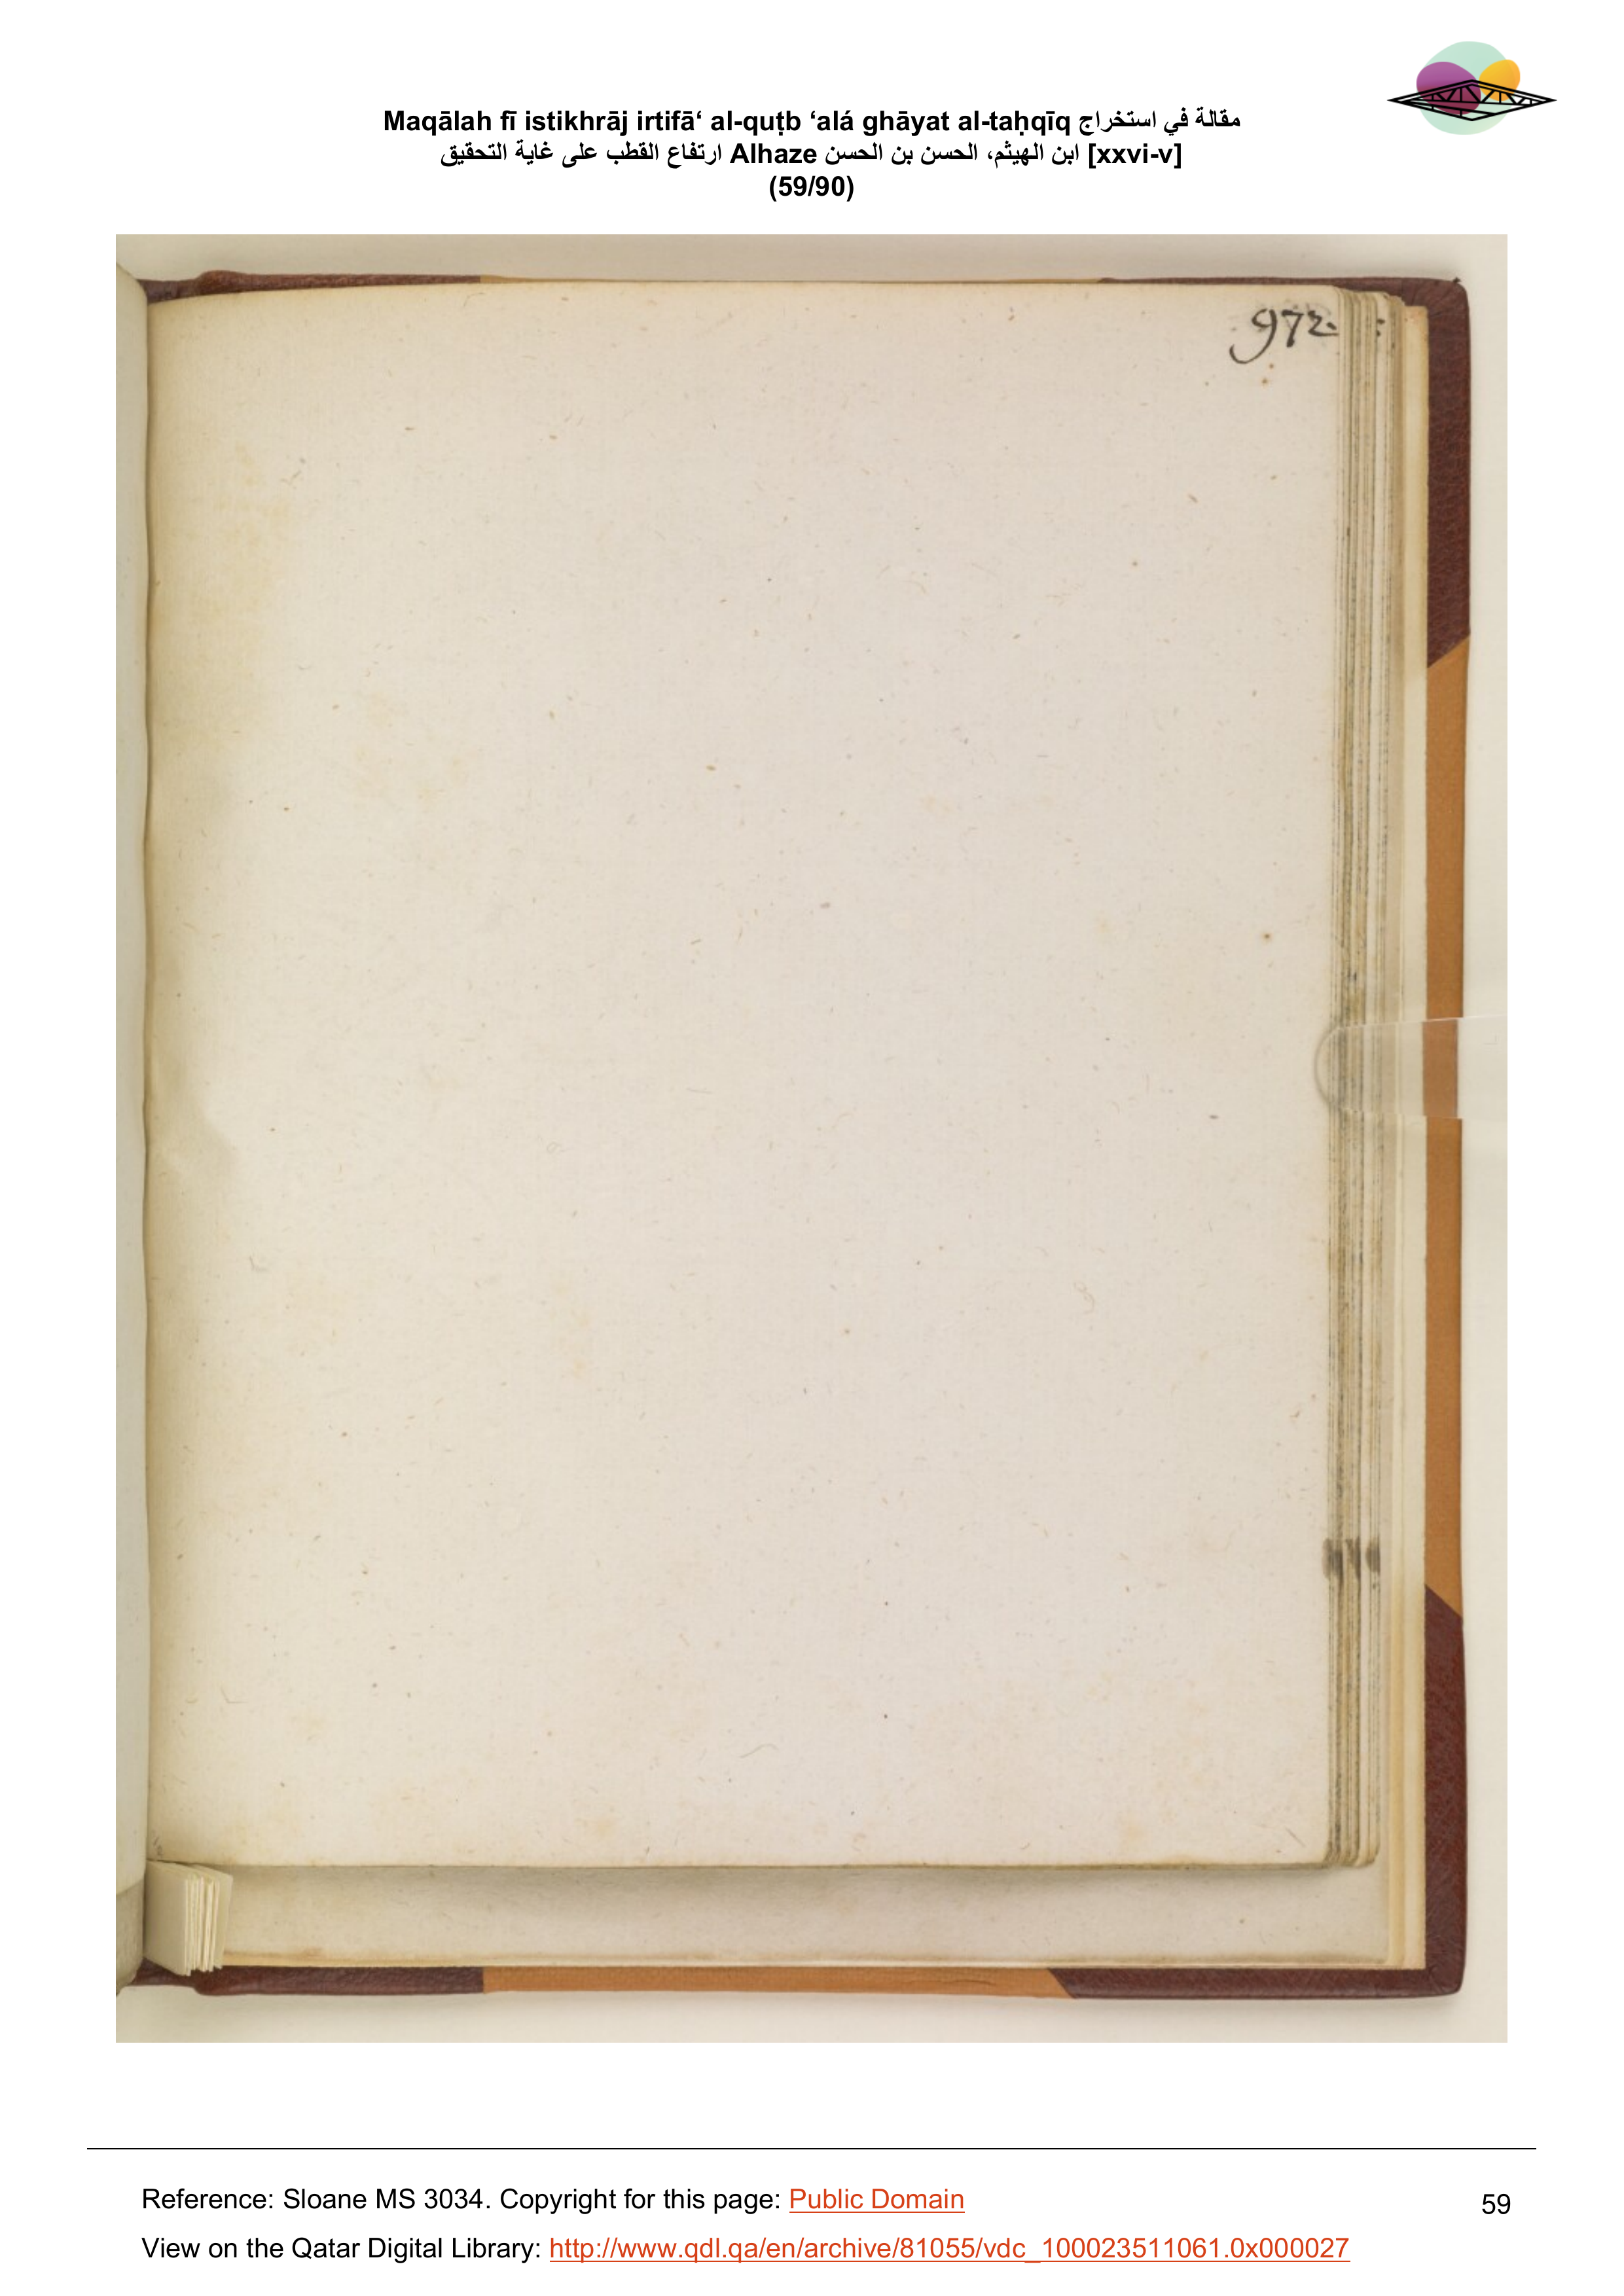 Maqālah fī istikhrāj irtifā‘ al-quṭb ‘alá ghāyat al-taḥqīq مقالة في استخراج
ارتفاع القطب على غاية التحقيق Alhaze ابن الهيثم، الحسن بن الحسن [xxvi-v]
(59/90)
972.
Reference: Sloane MS 3034. Copyright for this page: Public Domain
59
View on the Qatar Digital Library: http://www.qdl.qa/en/archive/81055/vdc_100023511061.0x000027